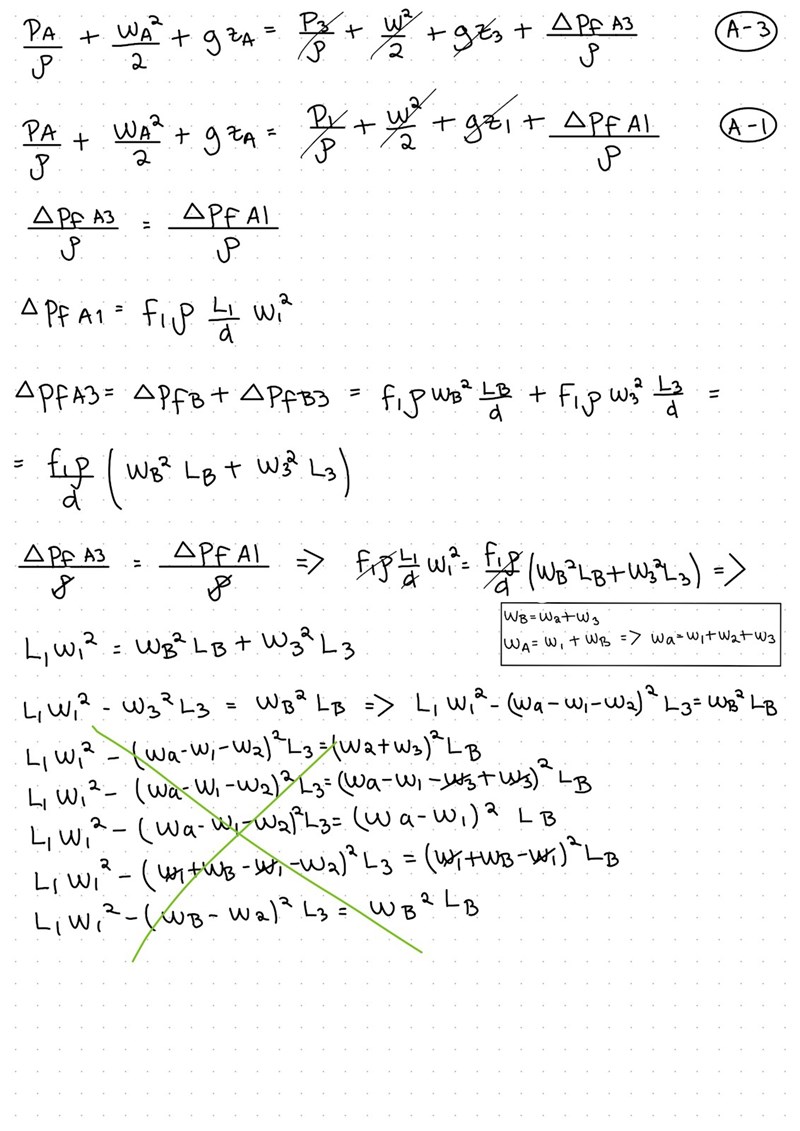 PA/ρ + wA²/2 + g zA = P3/ρ + w²/2 + gz3 + ΔPf A3/ρ (A-3)
PA/ρ + wA²/2 + g zA = P1/ρ + w²/2 + gz1 + ΔPf A1/ρ (A-1)
ΔPf A3/ρ = ΔPf A1/ρ
ΔPf A1 = f1 ρ L1/d w1²
ΔPf A3 = ΔPfB + ΔPfB3 = f1 ρ wB² LB/d + F1 ρ w3² L3/d =
= f1ρ/d (wB² LB + w3² L3)
ΔPf A3/ρ = ΔPf A1/ρ => f1ρ L1/d w1² = f1ρ/d (wB² LB + w3² L3) =>
wB = w2 + w3
wA = w1 + wB => wa = w1 + w2 + w3
L1 w1² = wB² LB + w3² L3
L1 w1² - w3² L3 = wB² LB => L1 w1² - (wa - w1 - w2)² L3 = wB² LB
L1 w1² - (wa - w1 - w2)² L3 = (w2 + w3)² LB
L1 w1² - (wa - w1 - w2)² L3 = (wa - w1 - w3 + w3)² LB
L1 w1² - (wa - w1 - w2)² L3 = (wa - w1)² LB
L1 w1² - (w1 + wB - w1 - w2)² L3 = (w1 + wB - w1)² LB
L1 w1² - (wB - w2)² L3 = wB² LB